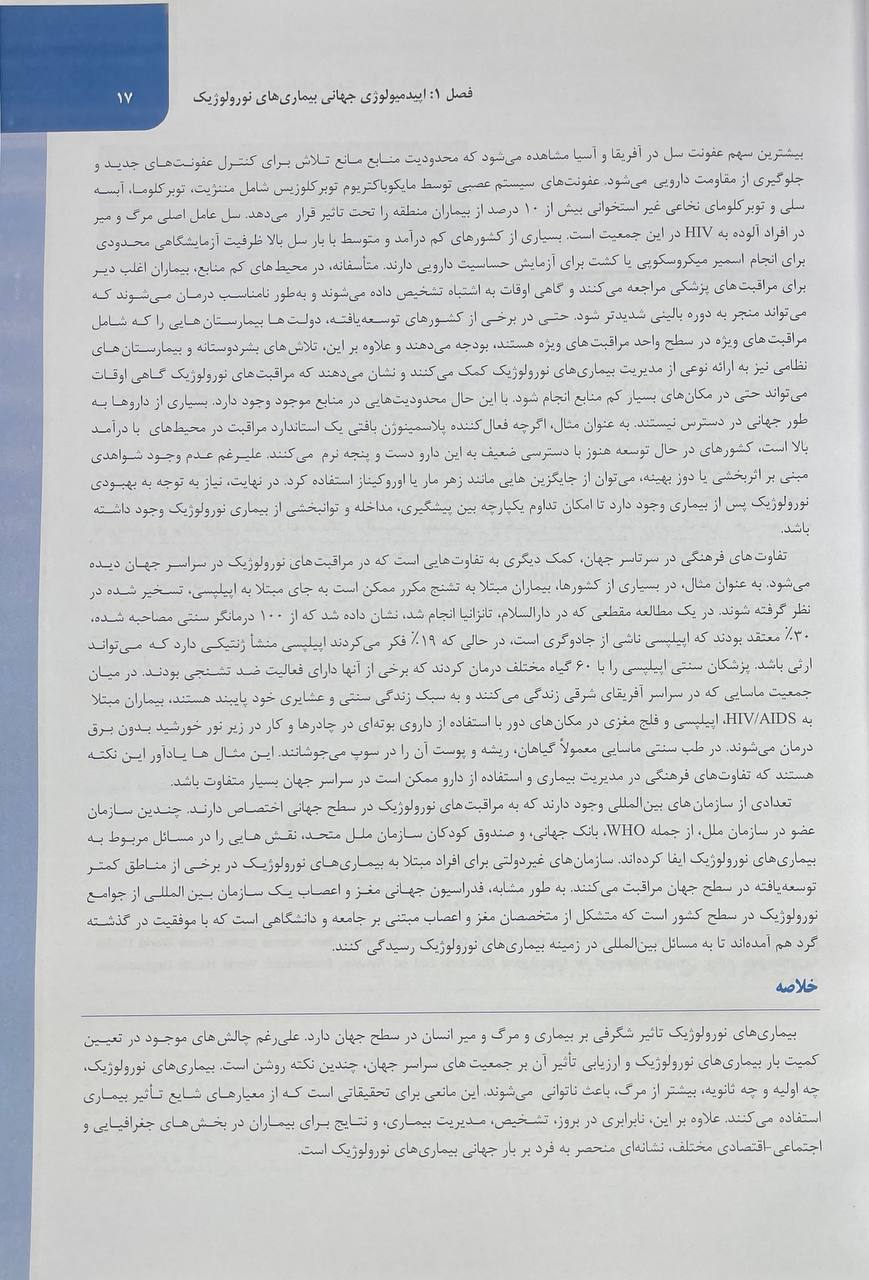 فصل ۱: اپیدمیولوژی جهانی بیماری‌های نورولوژیک
۱۷
بیشترین سهم عفونت سل در آفریقا و آسیا مشاهده می‌شود که محدودیت منابع مانع تلاش برای کنترل عفونت‌های جدید و
جلوگیری از مقاومت دارویی می‌شود. عفونت‌های سیستم عصبی توسط مایکوباکتریوم توبرکلوزیس شامل مننژیت، توبرکلوما، آبسه
سلی و توبرکلومای نخاعی غیر استخوانی بیش از ۱۰ درصد از بیماران منطقه را تحت تاثیر قرار می‌دهد. سل عامل اصلی مرگ و میر
در افراد آلوده به HIV در این جمعیت است. بسیاری از کشورهای کم درآمد و متوسط با بار سل بالا ظرفیت آزمایشگاهی محدودی
برای انجام اسمیر میکروسکوپی یا کشت برای آزمایش حساسیت دارویی دارند. متأسفانه، در محیط‌های کم منابع، بیماران اغلب دیر
برای مراقبت‌های پزشکی مراجعه می‌کنند و گاهی اوقات به اشتباه تشخیص داده می‌شوند و به‌طور نامناسب درمان می‌شوند که
می‌تواند منجر به دوره بالینی شدیدتر شود. حتی در برخی از کشورهای توسعه‌یافته، دولت‌ها بیمارستان‌هایی را که شامل
مراقبت‌های ویژه در سطح واحد مراقبت‌های ویژه هستند، بودجه می‌دهند و علاوه بر این، تلاش‌های بشردوستانه و بیمارستان‌های
نظامی نیز به ارائه نوعی از مدیریت بیماری‌های نورولوژیک کمک می‌کنند و نشان می‌دهند که مراقبت‌های نورولوژیک گاهی اوقات
می‌تواند حتی در مکان‌های بسیار کم منابع انجام شود. با این حال محدودیت‌هایی در منابع موجود وجود دارد. بسیاری از داروها به
طور جهانی در دسترس نیستند. به عنوان مثال، اگرچه فعال‌کننده پلاسمینوژن بافتی یک استاندارد مراقبت در محیط‌های با درآمد
بالا است، کشورهای در حال توسعه هنوز با دسترسی ضعیف به این دارو دست و پنجه نرم می‌کنند. علیرغم عدم وجود شواهدی
مبنی بر اثربخشی یا دوز بهینه، می‌توان از جایگزین هایی مانند زهر مار یا اوروکیناز استفاده کرد. در نهایت، نیاز به توجه به بهبودی
نورولوژیک پس از بیماری وجود دارد تا امکان تداوم یکپارچه بین پیشگیری، مداخله و توانبخشی از بیماری نورولوژیک وجود داشته
باشد.
تفاوت‌های فرهنگی در سرتاسر جهان، کمک دیگری به تفاوت‌هایی است که در مراقبت‌های نورولوژیک در سراسر جهان دیده
می‌شود. به عنوان مثال، در بسیاری از کشورها، بیماران مبتلا به تشنج مکرر ممکن است به جای مبتلا به اپیلپسی، تسخیر شده در
نظر گرفته شوند. در یک مطالعه مقطعی که در دارالسلام، تانزانیا انجام شد، نشان داده شد که از ۱۰۰ درمانگر سنتی مصاحبه شده،
۳۰٪ معتقد بودند که اپیلپسی ناشی از جادوگری است، در حالی که ۱۹٪ فکر می‌کردند اپیلپسی منشأ ژنتیکی دارد که می‌تواند
ارثی باشد. پزشکان سنتی اپیلپسی را با ۶۰ گیاه مختلف درمان کردند که برخی از آنها دارای فعالیت ضد تشنجی بودند. در میان
جمعیت ماسایی که در سراسر آفریقای شرقی زندگی می‌کنند و به سبک زندگی سنتی و عشایری خود پایبند هستند، بیماران مبتلا
به HIV/AIDS، اپیلپسی و فلج مغزی در مکان‌های دور با استفاده از داروی بوته‌ای در چادرها و کار در زیر نور خورشید بدون برق
درمان می‌شوند. در طب سنتی ماسایی معمولاً گیاهان، ریشه و پوست آن را در سوپ می‌جوشانند. این مثال ها یادآور این نکته
هستند که تفاوت‌های فرهنگی در مدیریت بیماری و استفاده از دارو ممکن است در سراسر جهان بسیار متفاوت باشد.
تعدادی از سازمان‌های بین‌المللی وجود دارند که به مراقبت‌های نورولوژیک در سطح جهانی اختصاص دارند. چندین سازمان
عضو در سازمان ملل، از جمله WHO، بانک جهانی، و صندوق کودکان سازمان ملل متحد، نقش هایی را در مسائل مربوط به
بیماری‌های نورولوژیک ایفا کرده‌اند. سازمان‌های غیردولتی برای افراد مبتلا به بیماری‌های نورولوژیک در برخی از مناطق کمتر
توسعه‌یافته در سطح جهان مراقبت می‌کنند. به طور مشابه، فدراسیون جهانی مغز و اعصاب یک سازمان بین المللی از جوامع
نورولوژیک در سطح کشور است که متشکل از متخصصان مغز و اعصاب مبتنی بر جامعه و دانشگاهی است که با موفقیت در گذشته
گرد هم آمده‌اند تا به مسائل بین‌المللی در زمینه بیماری‌های نورولوژیک رسیدگی کنند.
خلاصه
بیماری‌های نورولوژیک تاثیر شگرفی بر بیماری و مرگ و میر انسان در سطح جهان دارد. علی‌رغم چالش‌های موجود در تعیین
کمیت بار بیماری‌های نورولوژیک و ارزیابی تأثیر آن بر جمعیت های سراسر جهان، چندین نکته روشن است. بیماری‌های نورولوژیک،
چه اولیه و چه ثانویه، بیشتر از مرگ، باعث ناتوانی می‌شوند. این مانعی برای تحقیقاتی است که از معیارهای شایع تأثیر بیماری
استفاده می‌کنند. علاوه بر این، نابرابری در بروز، تشخیص، مدیریت بیماری، و نتایج برای بیماران در بخش‌های جغرافیایی و
اجتماعی-اقتصادی مختلف، نشانه‌ای منحصر به فرد بر بار جهانی بیماری‌های نورولوژیک است.